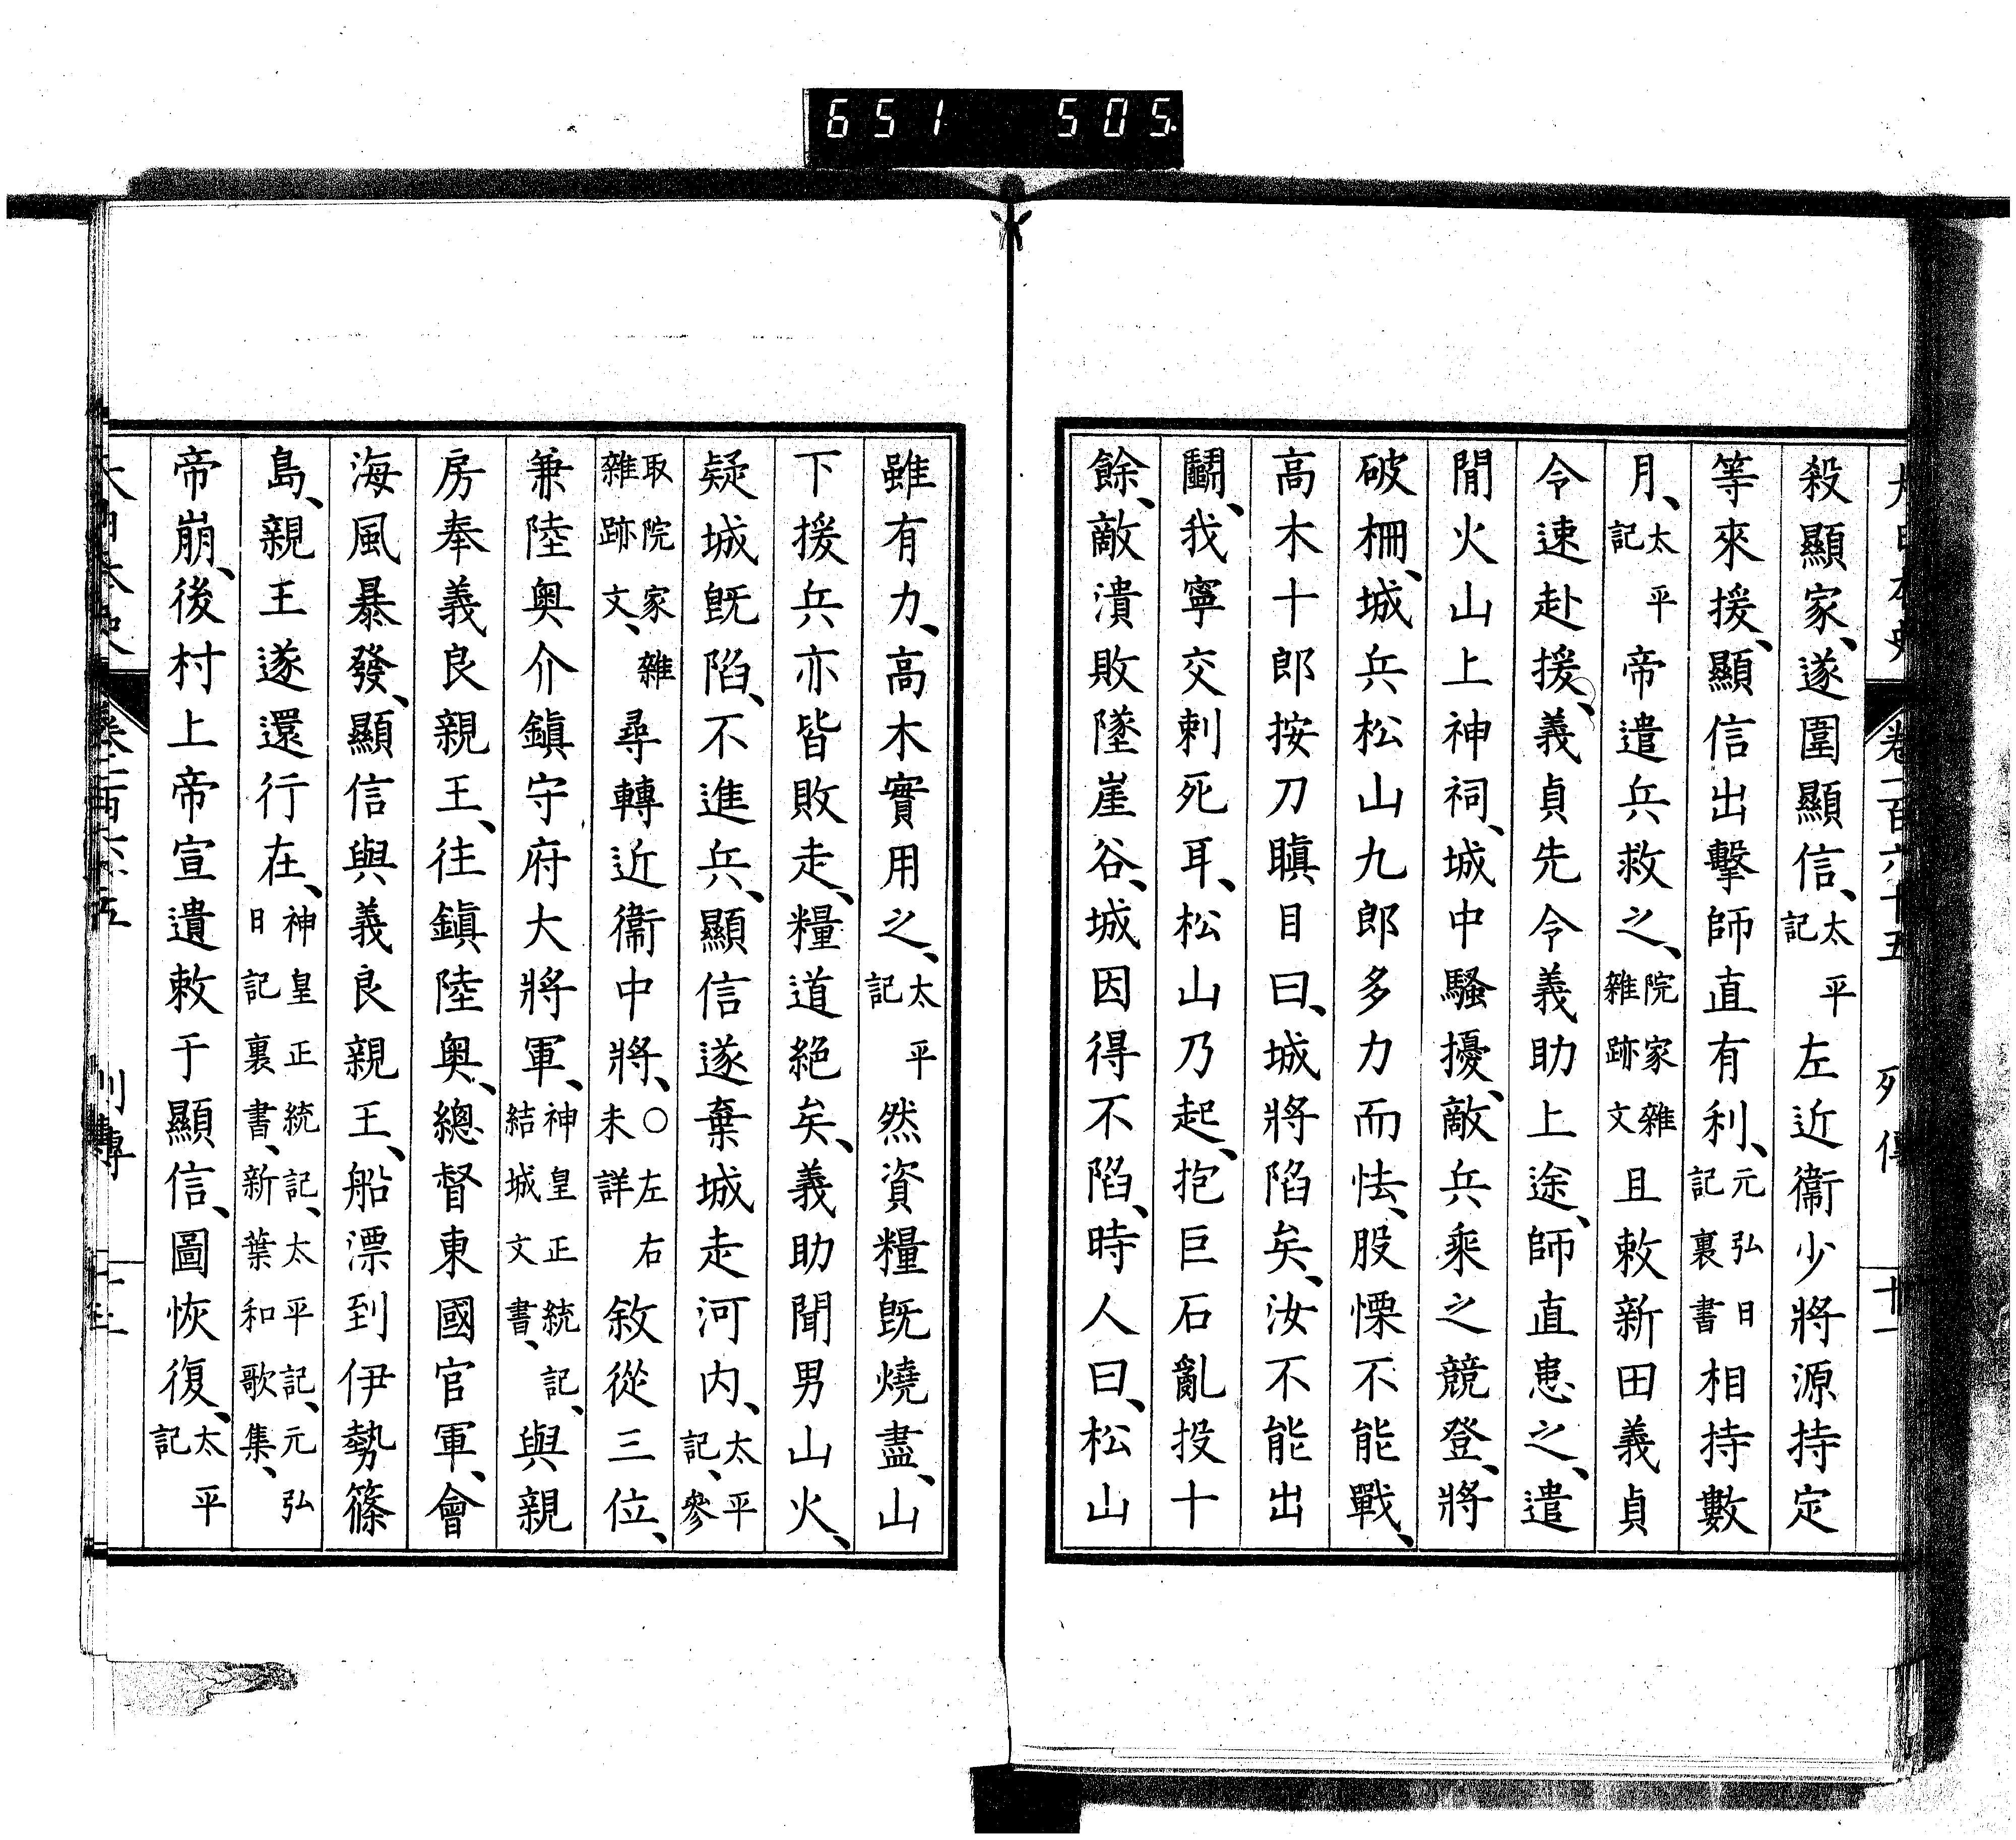 651 505
大日本史 卷一百六十五 列傳 十一
殺顯家、遂圍顯信、太平記左近衞少將源持定
等來援、顯信出擊師直有利、元弘日記裏書相持數
月、太平記帝遣兵救之、院家雜雜跡文且敕新田義貞
令速赴援、義貞先令義助上途、師直患之、遣
閒火山上神祠、城中騷擾、敵兵乘之競登、將
破柵、城兵松山九郎多力而怯、股慄不能戰、
高木十郎按刀瞋目曰、城將陷矣、汝不能出
鬭、我寧交刺死耳、松山乃起、抱巨石亂投十
餘、敵潰敗墜崖谷、城因得不陷、時人曰、松山
雖有力、高木實用之、太平記然資糧旣燒盡、山
下援兵亦皆敗走、糧道絕矣、義助聞男山火、
疑城旣陷、不進兵、顯信遂棄城走河内、太平記、參
取院家雜雜跡文、尋轉近衞中將、○左右未詳敘從三位、
兼陸奧介鎭守府大將軍、神皇正統記、結城文書、與親
房奉義良親王、往鎭陸奧、總督東國官軍、會
海風暴發、顯信與義良親王、船漂到伊勢篠
島、親王遂還行在、神皇正統記、太平記、元弘日記裏書、新葉和歌集、
帝崩、後村上帝宣遺敕于顯信、圖恢復、太平記
大日本史 卷一百六十五 列傳